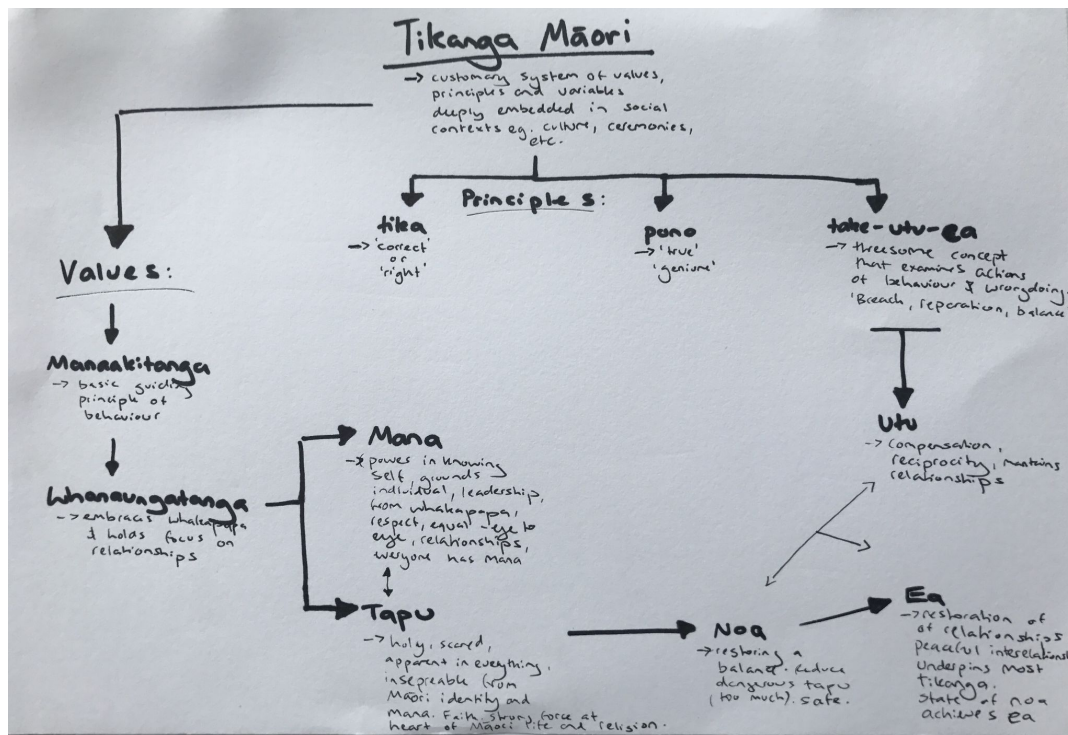 Tikanga Māori
→ customary system of values,
principles and variables
deeply embedded in social
contexts eg. culture, ceremonies,
etc.
Principles:
tika
→ 'correct'
or
'right'
pono
→ 'true'
'genuine'
take-utu-ea
→ threesome concept
that examines actions
of behaviour & wrongdoing.
'Breach, reparation, balance
Values:
Manaakitanga
→ basic guiding
principle of
behaviour
Whanaungatanga
→ embraces whakapapa
& holds focus on
relationships
Mana
→ power in knowing
self, grounds
individual, leadership,
from whakapapa,
respect, equal - eye to
eye, relationships,
everyone has mana
Tapu
→ holy, scared,
apparent in everything,
insepreable from
Māori identity and
Mana. Faith. Strong force at
heart of Māori life and religion.
Noa
→ restoring a
balance. Reduce
dangerous tapu
(too much). safe.
Utu
→ compensation,
reciprocity, mantains
relationships
Ea
→ restoration of
of relationships
peaceful interrelations
underpins most
tikanga.
State of noa
achieves ea